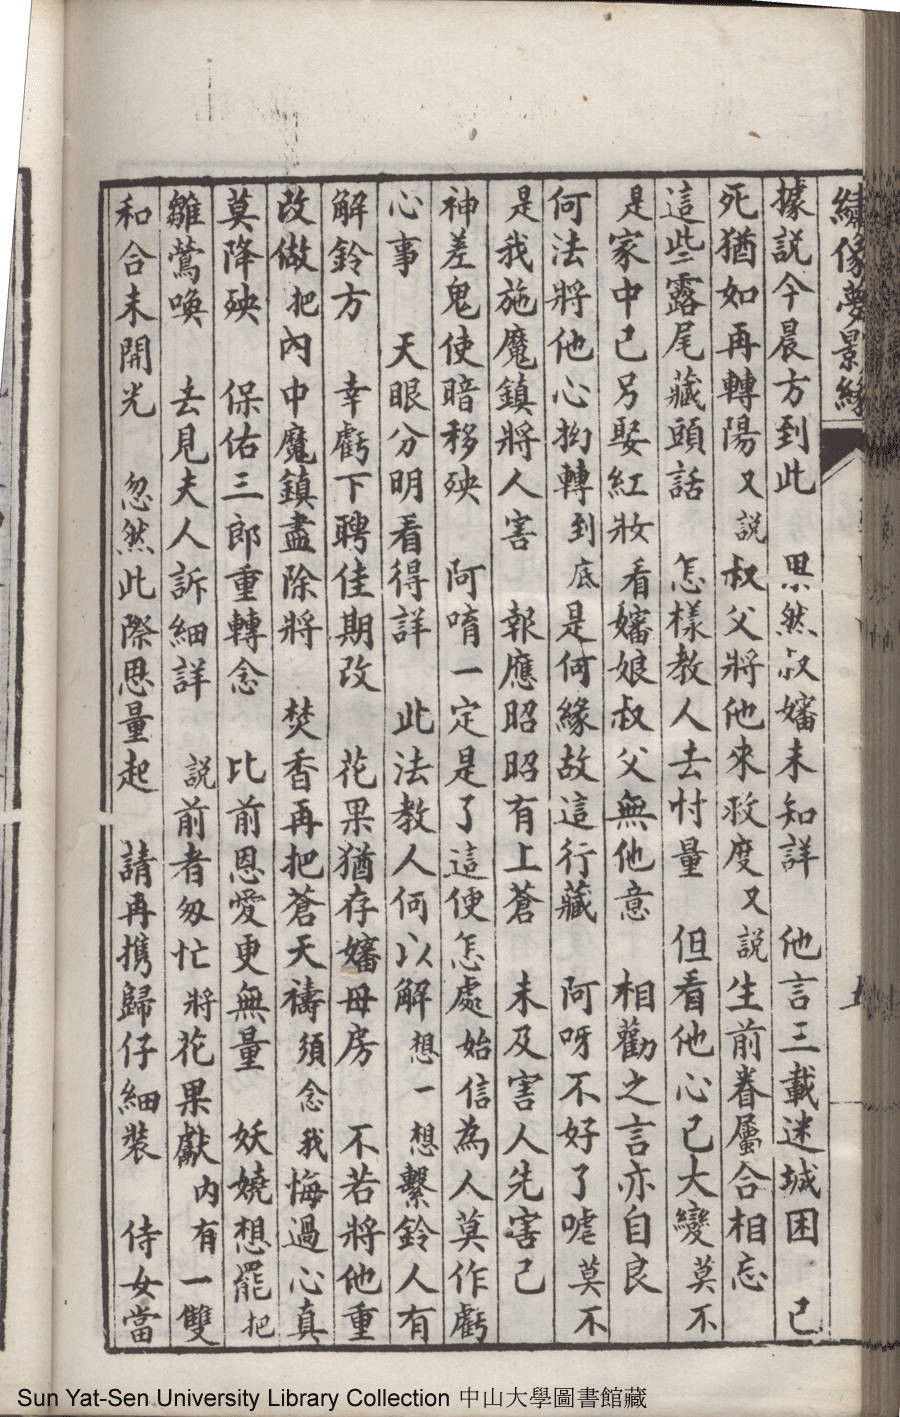 繡像夢景緣
據説今晨方到此　果然叔嬸未知詳　他言三載迷城困　已
死猶如再轉陽又説叔父將他來救度又説生前眷屬合相忘
這些露尾藏頭話　怎樣教人去忖量　但看他心已大變莫不
是家中已另娶紅妝看嬸娘叔父無他意　相勸之言亦自良
何法將他心拗轉到底是何緣故這行藏　阿呀不好了嘘莫不
是我施魔鎮將人害　報應昭昭有上蒼　未及害人先害己
神差鬼使暗移殃　阿唷一定是了這便怎處始信為人莫作虧
心事　天眼分明看得詳　此法教人何以解想一想繫鈴人有
解鈴方　幸虧下聘佳期改　花果猶存嬸母房　不若將他重
改做把內中魔鎮盡除將　焚香再把蒼天禱須念我悔過心真
莫降殃　保佑三郎重轉念　比前恩愛更無量　妖嬈想罷把
雛鶯喚　去見夫人訴細詳　説前者匆忙將花果獻內有一雙
和合未開光　忽然此際思量起　請再攜歸仔細裝　侍女當
Sun Yat-Sen University Library Collection 中山大學圖書館藏